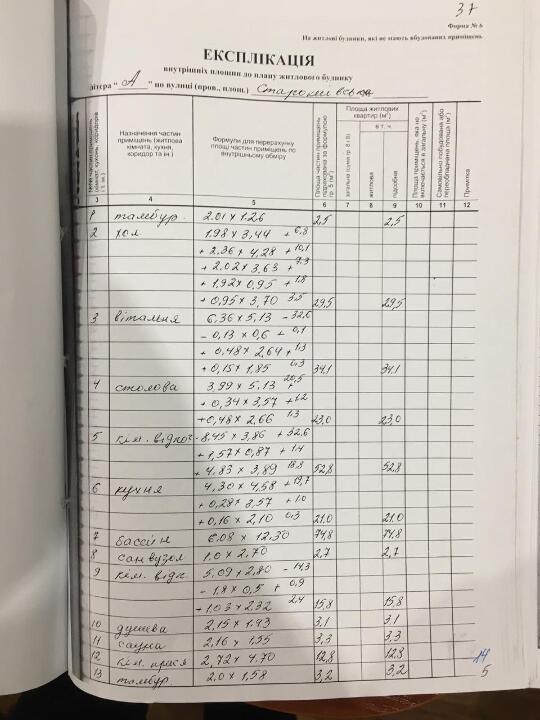 37
Форма № 6
На житлові будинки, які не мають вбудованих приміщень
ЕКСПЛІКАЦІЯ
внутрішніх площин до плану житлового будинку
літера " А " по вулиці (пров., площ.) Старокиївська
Призначення частин приміщень (житлова кімната, кухня, коридор та ін.)
Формули для перерахунку площі частин приміщень по внутрішньому обміру
Площа частин приміщень підрахована за формулою гр. 5 (м²)
Площа житлових квартир (м²)
в т. ч.
загальна (сума гр. 8 і 9)
житлова
підсобна
Площа приміщень, яка не включається в загальну (м²)
Самовільно побудована або переобладнана площа (м²)
Примітка
3 4 5 6 7 8 9 10 11 12
1 тамбур. 2.01 x 1.26 2,5 2,5
2 хол 1.98 x 3,44 + 6,8
+ 2.36 x 4,28 + 10,1
+ 2.02 x 3,63 + 7.3
+ 1,92 x 0,95 + 1,8
+ 0,95 x 3,70 3,5 29,5 29,5
3 вітальня 6.36 x 5,13 - 32,6
- 0,13 x 0,6 + 0,1
+ 0,48 x 2,64 + 1,3
+ 0,15 x 1,85 0,3 34,1 34,1
4 столова 3,99 x 5,13 + 20,5
+ 0,34 x 3,57 + 1,2
+ 0,48 x 2,66 1.3 23,0 23,0
5 кім. відпоч 8,45 x 3,86 + 32,6
+ 1,57 x 0,87 + 1.4
+ 4.83 x 3,89 18,8 52,8 52,8
6 кухня 4,30 x 4,58 + 19,7
+ 0,28 x 3,57 + 1.0
+ 0,16 x 2,10 0,3 21,0 21.0
7 бассейн 6,08 x 12,30 74,8 74,8
8 санвузол 1.0 x 2,70 2,7 2,7
9 кім. відп 5,09 x 2,80 - 14,3
- 1.8 x 0,5 + 0,9
+ 1.03 x 2.32 2,4 15,8 15,8
10 душева 2,15 x 1.43 3,1 3.1
11 сауна 2,16 x 1.55 3,3 3,3
12 2,72 x 4.70 12,8 12,8
13 тамбур. 2.0 x 1,58 3,2 3,2
14
5